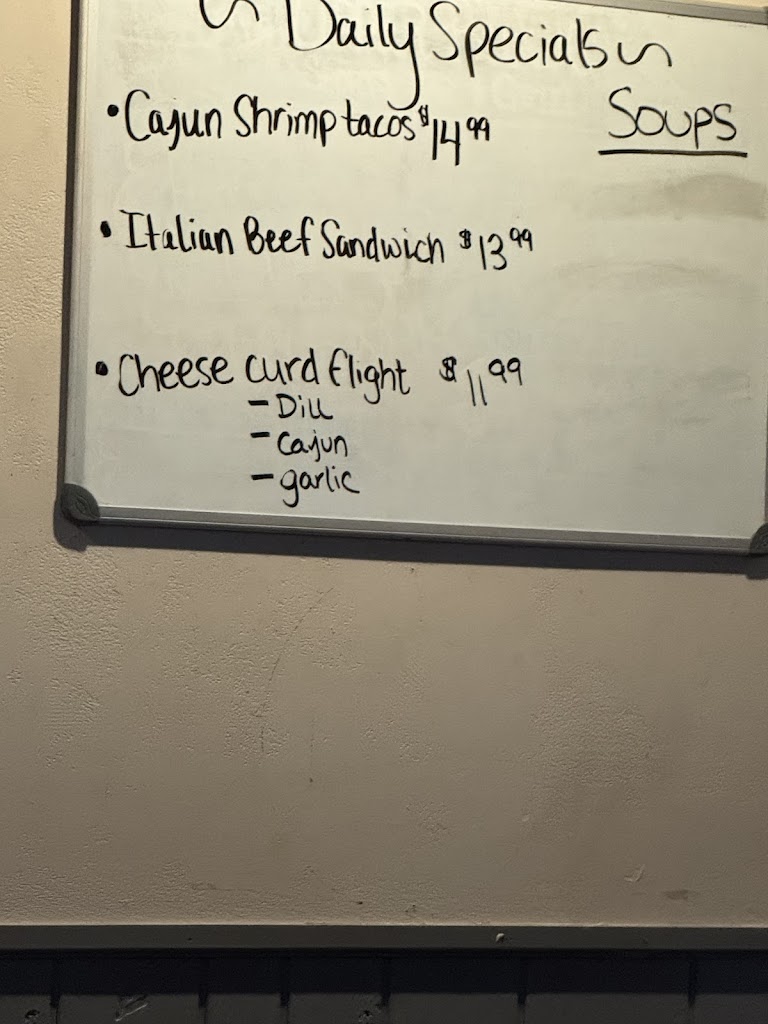 Daily Specials
SOUPS
• Cajun Shrimp tacos $14.99
• Italian Beef Sandwich $13.99
• Cheese curd flight $11.99
- Dill
- Cajun
- garlic